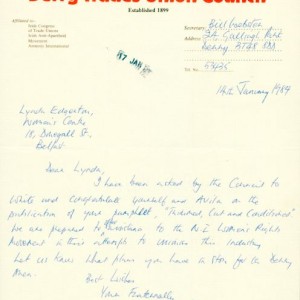 Derry Trades Union Council
Established 1899
Affiliated to:
Irish Congress
of Trade Unions
Irish Anti-Apartheid
Movement
Amnesty International
Secretary: Bill Webster
Derry BT48
Tel. No.
17 JAN
14th January 1984
Lynda Edgerton,
Women's Centre
18, Donegall St,
Belfast
Dear Lynda,
I have been asked by the Council to
write and congratulate yourself and Avila on the
publication of your pamphlet, "Trimmed, Cut and
We are prepared to to the N.I. Women's Rights
Movement in their attempts to this industry
Let us have that when you have a
Best Wishes
Yours Fraternally